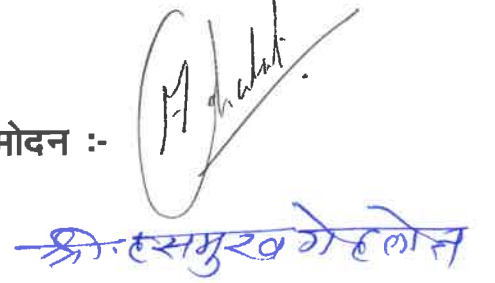 मोदन :-
श्री. हसमुख गेहलोत